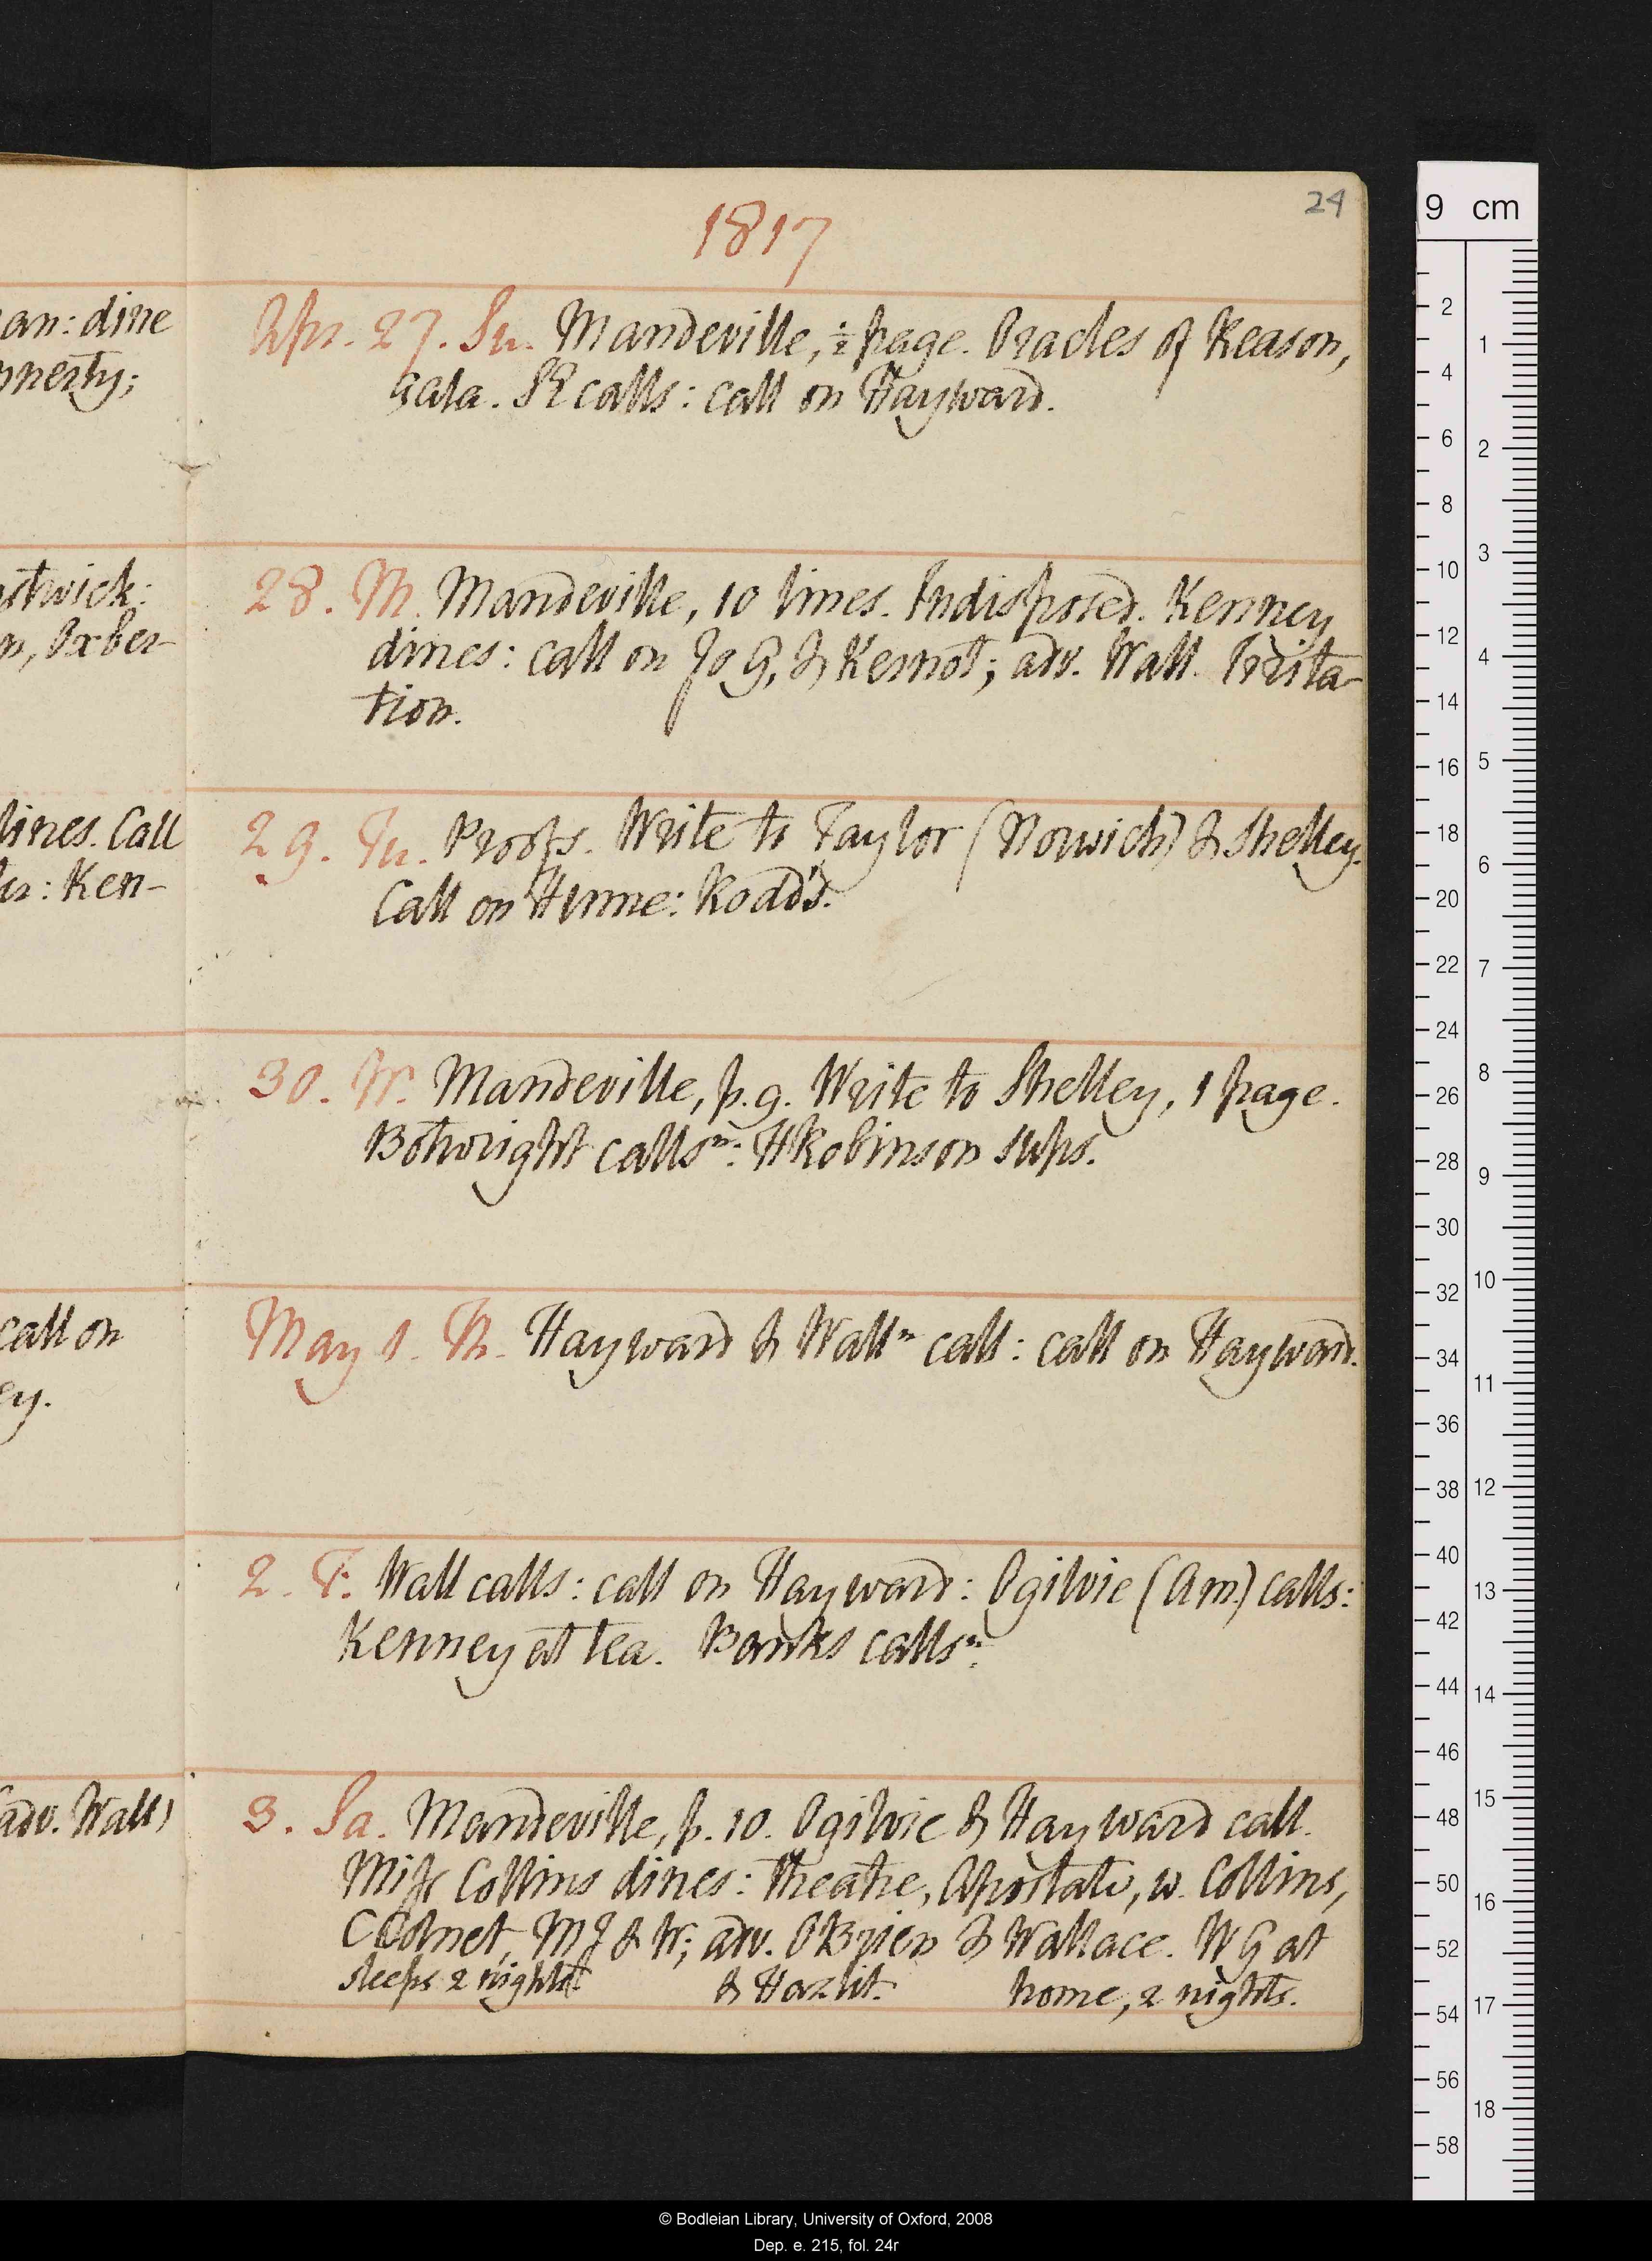 24
1817
an: dine
nnerty;
Apr. 27. Su. Mandeville, ½ page. Oracles of Reason,
çala. PR calls: call on Hayward.
stwick:
n, Oxber-
28. M. Mandeville, 10 lines. Indisposed. Kenney
dines: call on Jo G, & Kernot; adv. Wall. Irrita-
tion.
lines. Call
: Ken-
29. Tu. Proofs. Write to Taylor (Norwich) & Shelley.
Call on Hume: Rodd's.
30. W. Mandeville, p. 9. Write to Shelley, 1 page.
Botwright callsⁿ: HRobinson sups.
call on
ey.
May 1. Th. Hayward & Wallⁿ call: call on Hayward.
2. F. Wall calls: call on Hayward: Ogilvie (Am.) calls:
Kenney at tea. Banks callsⁿ.
adv. Wall)
3. Sa. Mandeville, p. 10. Ogilvie & Hayward call.
Miss Collins dines: theatre, Apostate, w. Collins,
CColnet, MJ & W; adv. OBrien & Wallace. WG at
sleeps 2 nights
& Hazlit.
home, 2 nights.
9 cm
2
4
6
8
10
12
14
16
18
20
22
24
26
28
30
32
34
36
38
40
42
44
46
48
50
52
54
56
58
1
2
3
4
5
6
7
8
9
10
11
12
13
14
15
16
17
18
© Bodleian Library, University of Oxford, 2008
Dep. e. 215, fol. 24r